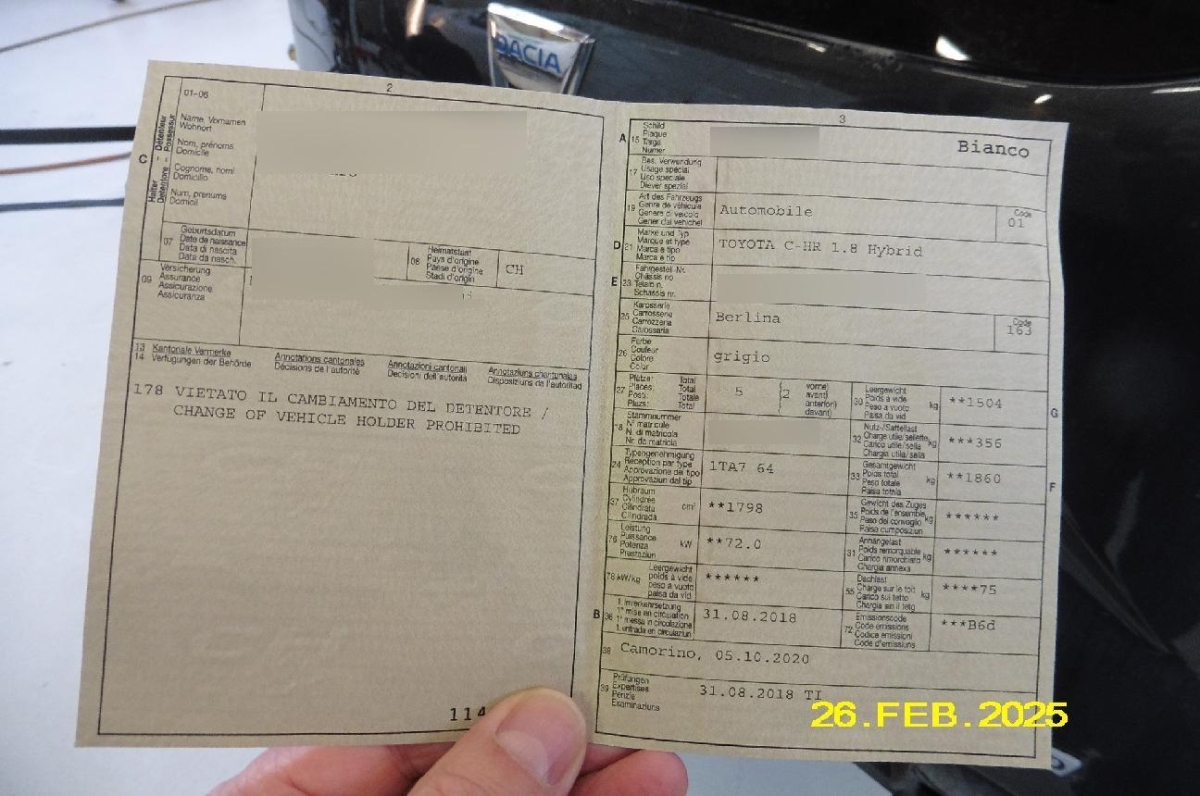 DACIA
2
01-06
Name, Vornamen
Wohnort
Nom, prénoms
Domicile
Cognome, nomi
Domicilio
Num, prenums
Domicil
C
Halter - Détenteur
Detentore - Possessur
07
Geburtsdatum
Date de naissance
Data di nascita
Data da nasch.
08
Heimatstaat
Pays d'origine
Paese d'origine
Stadi d'origin
CH
09
Versicherung
Assurance
Assicurazione
Assicuranza
13
14
Kantonale Vermerke
Verfügungen der Behörde
Annotations cantonales
Décisions de l'autorité
Annotazioni cantonali
Decisioni dell'autorità
Annotaziuns chantunalas
Disposiziuns da l'autoritad
178 VIETATO IL CAMBIAMENTO DEL DETENTORE /
CHANGE OF VEHICLE HOLDER PROHIBITED
114
3
A 15
Schild
Plaque
Targa
Numer
Bianco
17
Bes. Verwendung
Usage spécial
Uso speciale
Diever spezial
19
Art des Fahrzeugs
Genre de véhicule
Genere di veicolo
Gener dal vehichel
Automobile
Code
01
D 21
Marke und Typ
Marque et type
Marca e tipo
Marca e tip
TOYOTA C-HR 1.8 Hybrid
E 23
Fahrgestell-Nr.
Châssis no
Telaio n.
Schassis nr.
25
Karosserie
Carrosserie
Carrozzeria
Carossaria
Berlina
Code
163
26
Farbe
Couleur
Colore
Colur
grigio
27
Plätze: Total
Places: Total
Posti: Totale
Plazs: Total
5
2
vorne)
avant)
anteriori)
davant)
30
Leergewicht
Poids à vide
Peso a vuoto
Paisa da vid
kg
**1504
G
18
Stammnummer
N° matricule
N. di matricola
Nr. da matricla
32
Nutz-/Sattellast
Charge utile/sellette
Carico utile/sella
Chargia utila/sella
kg
***356
24
Typengenehmigung
Réception par type
Approvazione del tipo
Approvaziun dal tip
1TA7 64
33
Gesamtgewicht
Poids total
Peso totale
Paisa totala
kg
**1860
F
37
Hubraum
Cylindrée
Cilindrata
Cilindrada
cm³
**1798
35
Gewicht des Zuges
Poids de l'ensemble
Peso del convoglio
Paisa cumposiziun
kg
******
76
Leistung
Puissance
Potenza
Prestaziun
kW
**72.0
31
Anhängelast
Poids remorquable
Carico rimorchiato
Chargia annexa
kg
******
78 kW/kg
Leergewicht
poids à vide
peso a vuoto
paisa da vid
******
55
Dachlast
Charge sur le toit
Carico sul tetto
Chargia sin il tetg
kg
****75
B 36
1. Inverkehrsetzung
1re mise en circulation
1a messa in circolazione
1. entrada en circulaziun
31.08.2018
72
Emissionscode
Code émissions
Codice emissioni
Code d'emissiuns
***B6d
38
Camorino, 05.10.2020
39
Prüfungen
Expertises
Perizie
Examinaziuns
31.08.2018 TI
26.FEB.2025